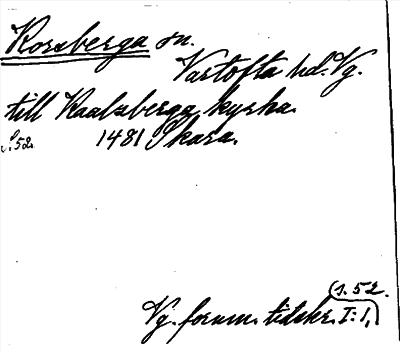 Korsberga sn.
Vartofta hd. Vg.
till Kaalzberga kyrka.
s. 52. 1481 Skara.
(s. 52.
Vg. fornm. tidskr. I: 1,